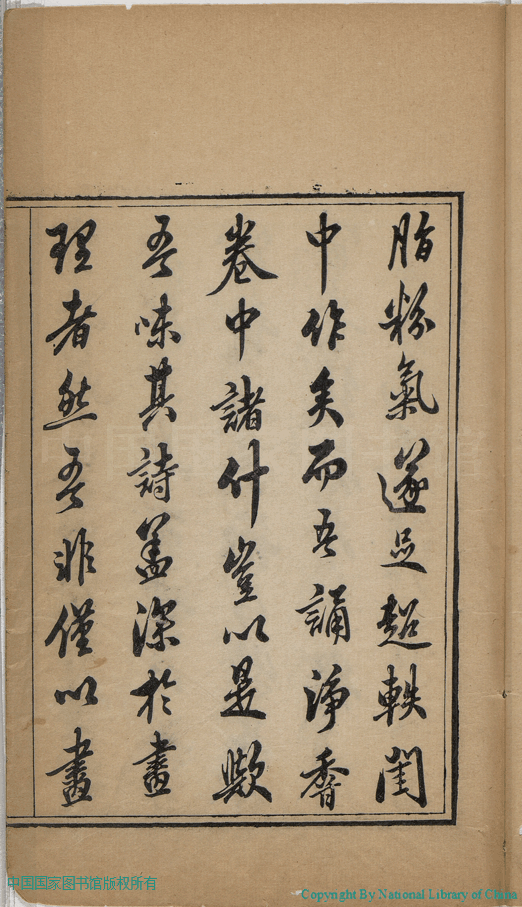 脂粉氣遂足超軼閨
中作矣而吾誦淨香
卷中諸什豈以是歟
吾味其詩蓋深於畫
理者然吾非僅以畫
中国国家图书馆版权所有
Copyright By National Library of China